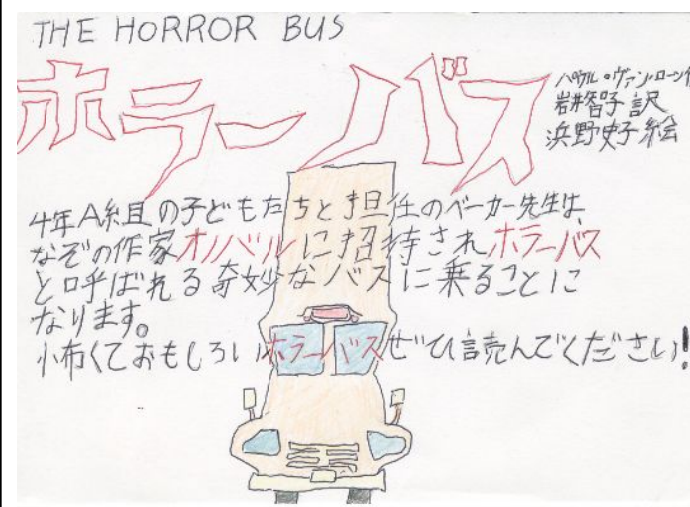 THE HORROR BUS
ホラーバス
パウル・ヴァン・ローン作
岩井智子 訳
浜野史子 絵
4年A組の子どもたちと担任のベーカー先生は、
なぞの作家オノバルに招待されホラーバス
と呼ばれる奇妙なバスに乗ることに
なります。
怖くておもしろいホラーバスぜひ読んでください!